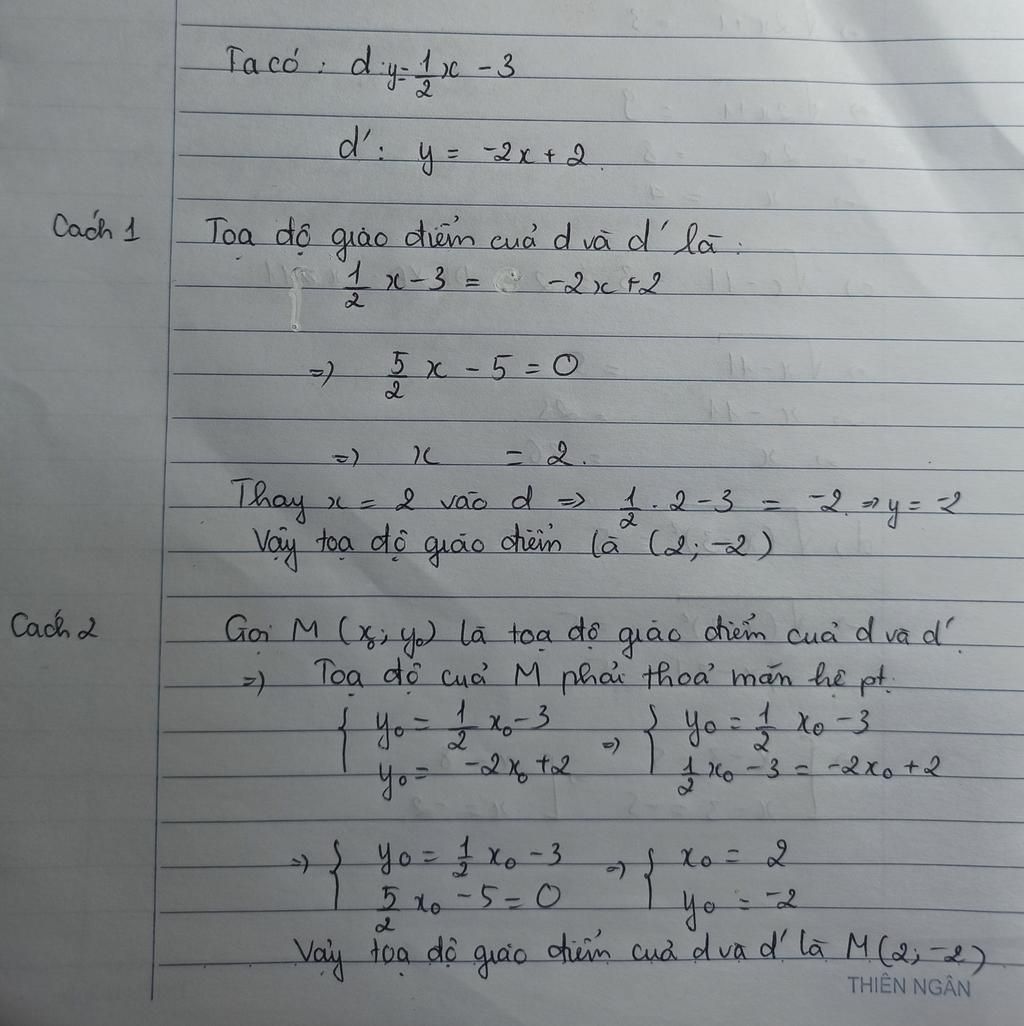 Ta có: d: y = 1/2 x - 3
d': y = -2x + 2
Cách 1 Toạ độ giao điểm cuả d và d' là:
1/2 x - 3 = -2x + 2
=> 5/2 x - 5 = 0
=> x = 2.
Thay x = 2 vào d => 1/2 . 2 - 3 = -2 => y = -2
Vậy toạ độ giao điểm là (2; -2)
Cách 2 Gọi M (x₀; y₀) là toạ độ giao điểm cuả d và d'.
=> Toạ độ cuả M phải thoả mãn hệ pt.
{ y₀ = 1/2 x₀ - 3 => { y₀ = 1/2 x₀ - 3
y₀ = -2x₀ + 2 1/2 x₀ - 3 = -2x₀ + 2
=> { y₀ = 1/2 x₀ - 3 => { x₀ = 2
5/2 x₀ - 5 = 0 y₀ = -2
Vậy toạ độ giao điểm cuả d và d' là M(2; -2)
THIÊN NGÂN